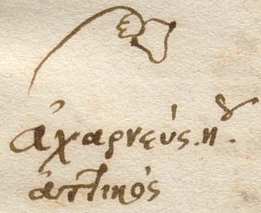 ἀχαρνεύς. ἢ
ἀττικός